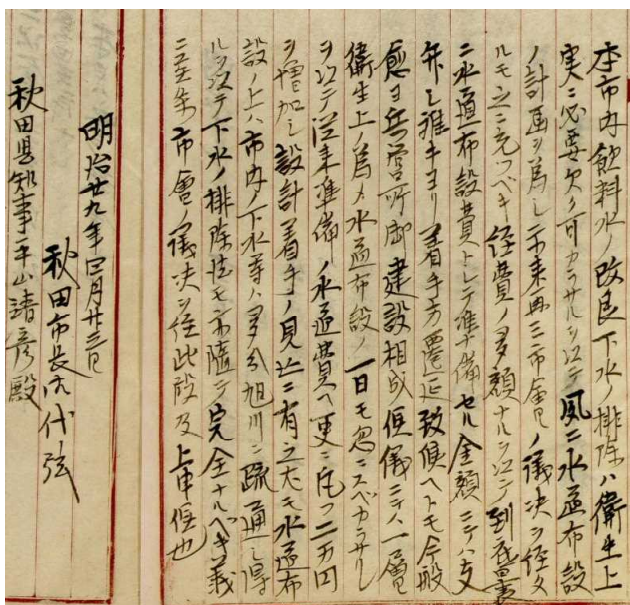 本市内飲料水ノ改良下水ノ排除ハ衛生上
実ニ必要欠ク可カラサルヲ以テ夙ニ水道布設
ノ計画ヲ為シ示来再三市会ノ議決ヲ経タ
ルモ之ニ充ツベキ経費ノ多額ナルヲ以テ到底
ニ水道布設費トシテ準備セル金額ニテハ支
弁シ難キヨリ着手方遷延致候ヘトモ今般
愈ヨ兵営所御建設相成候儀ニテハ一層
衛生上ノ為メ水道布設ノ一日モ忽ニスベカラサル
ヲ以テ従来準備ノ水道費ヘ更ニ凡ツ二万円
ヲ増加シ設計着手ノ見込ニ有之尤モ水道布
設ノ上ハ市内ノ下水等ハ多分旭川ニ疏通シ得
ルヲ以テ下水ノ排除法モ亦随テ完全ナルベキ義
ニ至 市会ノ議決ヲ経此段及上申候也
明治廿九年四月廿三日
秋田市長 代弦
秋田県知事平山靖彦殿